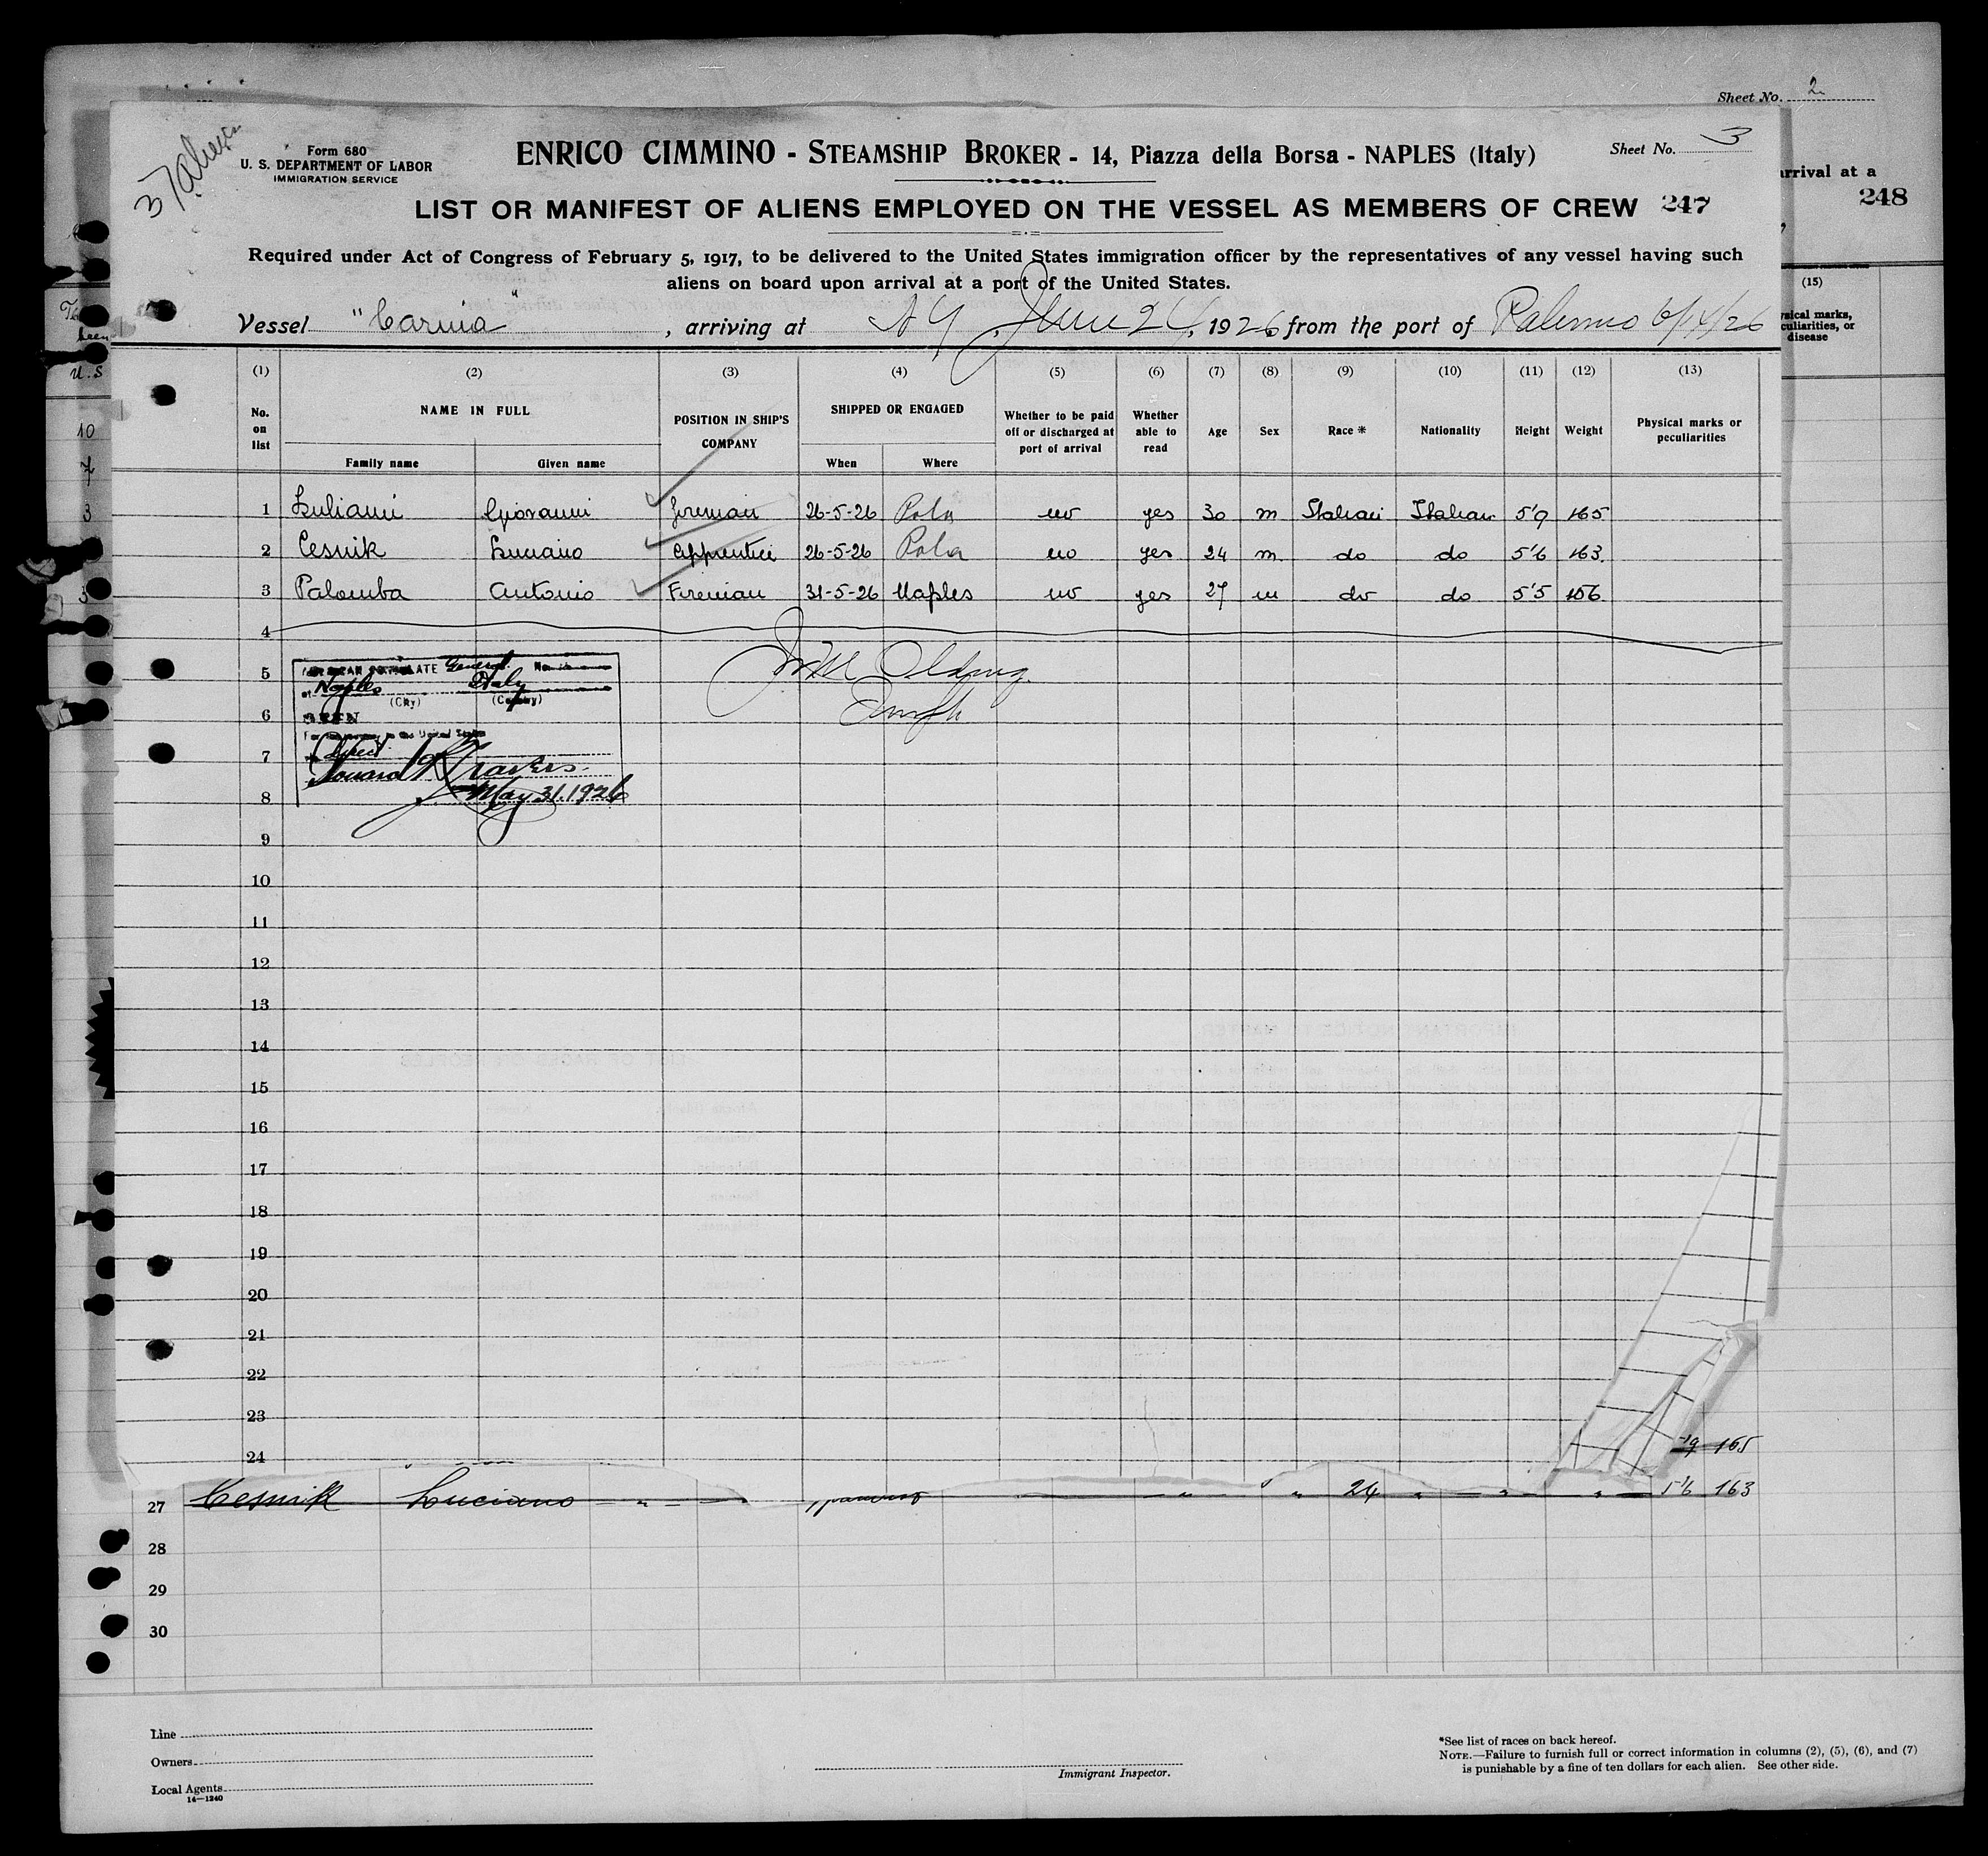 Sheet No. 2
37 aliens
Form 680
U. S. DEPARTMENT OF LABOR
IMMIGRATION SERVICE
ENRICO CIMMINO - STEAMSHIP BROKER - 14, Piazza della Borsa - NAPLES (Italy)
Sheet No. 3
LIST OR MANIFEST OF ALIENS EMPLOYED ON THE VESSEL AS MEMBERS OF CREW 247
arrival at a
248
Required under Act of Congress of February 5, 1917, to be delivered to the United States immigration officer by the representatives of any vessel having such
aliens on board upon arrival at a port of the United States.
Vessel "Carnia", arriving at N Y, June 24, 1926, from the port of Palermo 6/14/26
(15)
sical marks,
culiarities, or
disease
been
U.S
10
7
3
(1) (2) (3) (4) (5) (6) (7) (8) (9) (10) (11) (12) (13)
No. on list
NAME IN FULL
Family name Given name
POSITION IN SHIP'S COMPANY
SHIPPED OR ENGAGED
When Where
Whether to be paid off or discharged at port of arrival
Whether able to read
Age Sex Race * Nationality Height Weight
Physical marks or peculiarities
1 Luliani Giovanni fireman 26-5-26 Pola no yes 30 m Italian Italian 5'9 165
2 Cesnik Luciano apprentice 26-5-26 Pola no yes 24 m do do 5'6 163
3 Palomba Antonio Fireman 31-5-26 Naples no yes 27 m do do 5'5 156
4
5
6
7
8
AMERICAN CONSULATE General No.
at Naples Italy
(City) (Country)
SEEN
For the journey to the United States
Direct
Howard K Travers
May 31. 1926
9
10
11
12
13
14
15
16
17
18
19
20
21
22
23
24
9 165
27 Cesnik Luciano " " " " 24 " " " 5'6 163
28
29
30
Line
Owners
Local Agents
14—1240
Immigrant Inspector.
*See list of races on back hereof.
NOTE.—Failure to furnish full or correct information in columns (2), (5), (6), and (7)
is punishable by a fine of ten dollars for each alien. See other side.